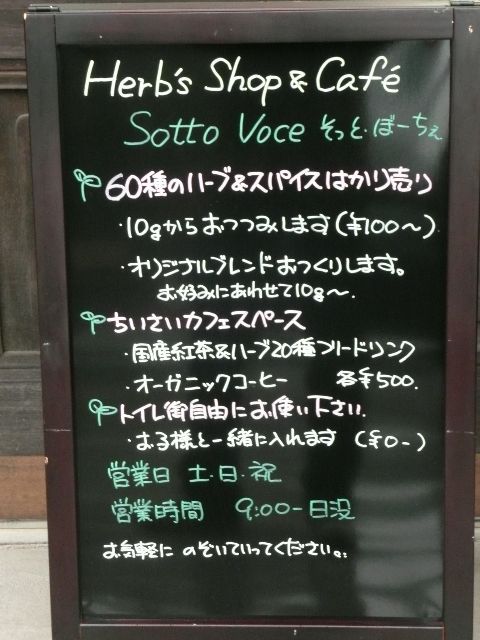 Herb's Shop & Café
Sotto Voce そっと・ぼーちぇ
60種のハーブ&スパイスはかり売り
・10gからおつつみします(¥100〜)
・オリジナルブレンドおつくりします。
お好みにあわせて10g〜.
ちいさいカフェスペース
・国産紅茶&ハーブ20種フリードリンク
・オーガニックコーヒー 各¥500.
トイレ御自由にお使い下さい.
・お子様と一緒に入れます (¥0-)
営業日 土・日・祝
営業時間 9:00-日没
お気軽に のぞいていってください。